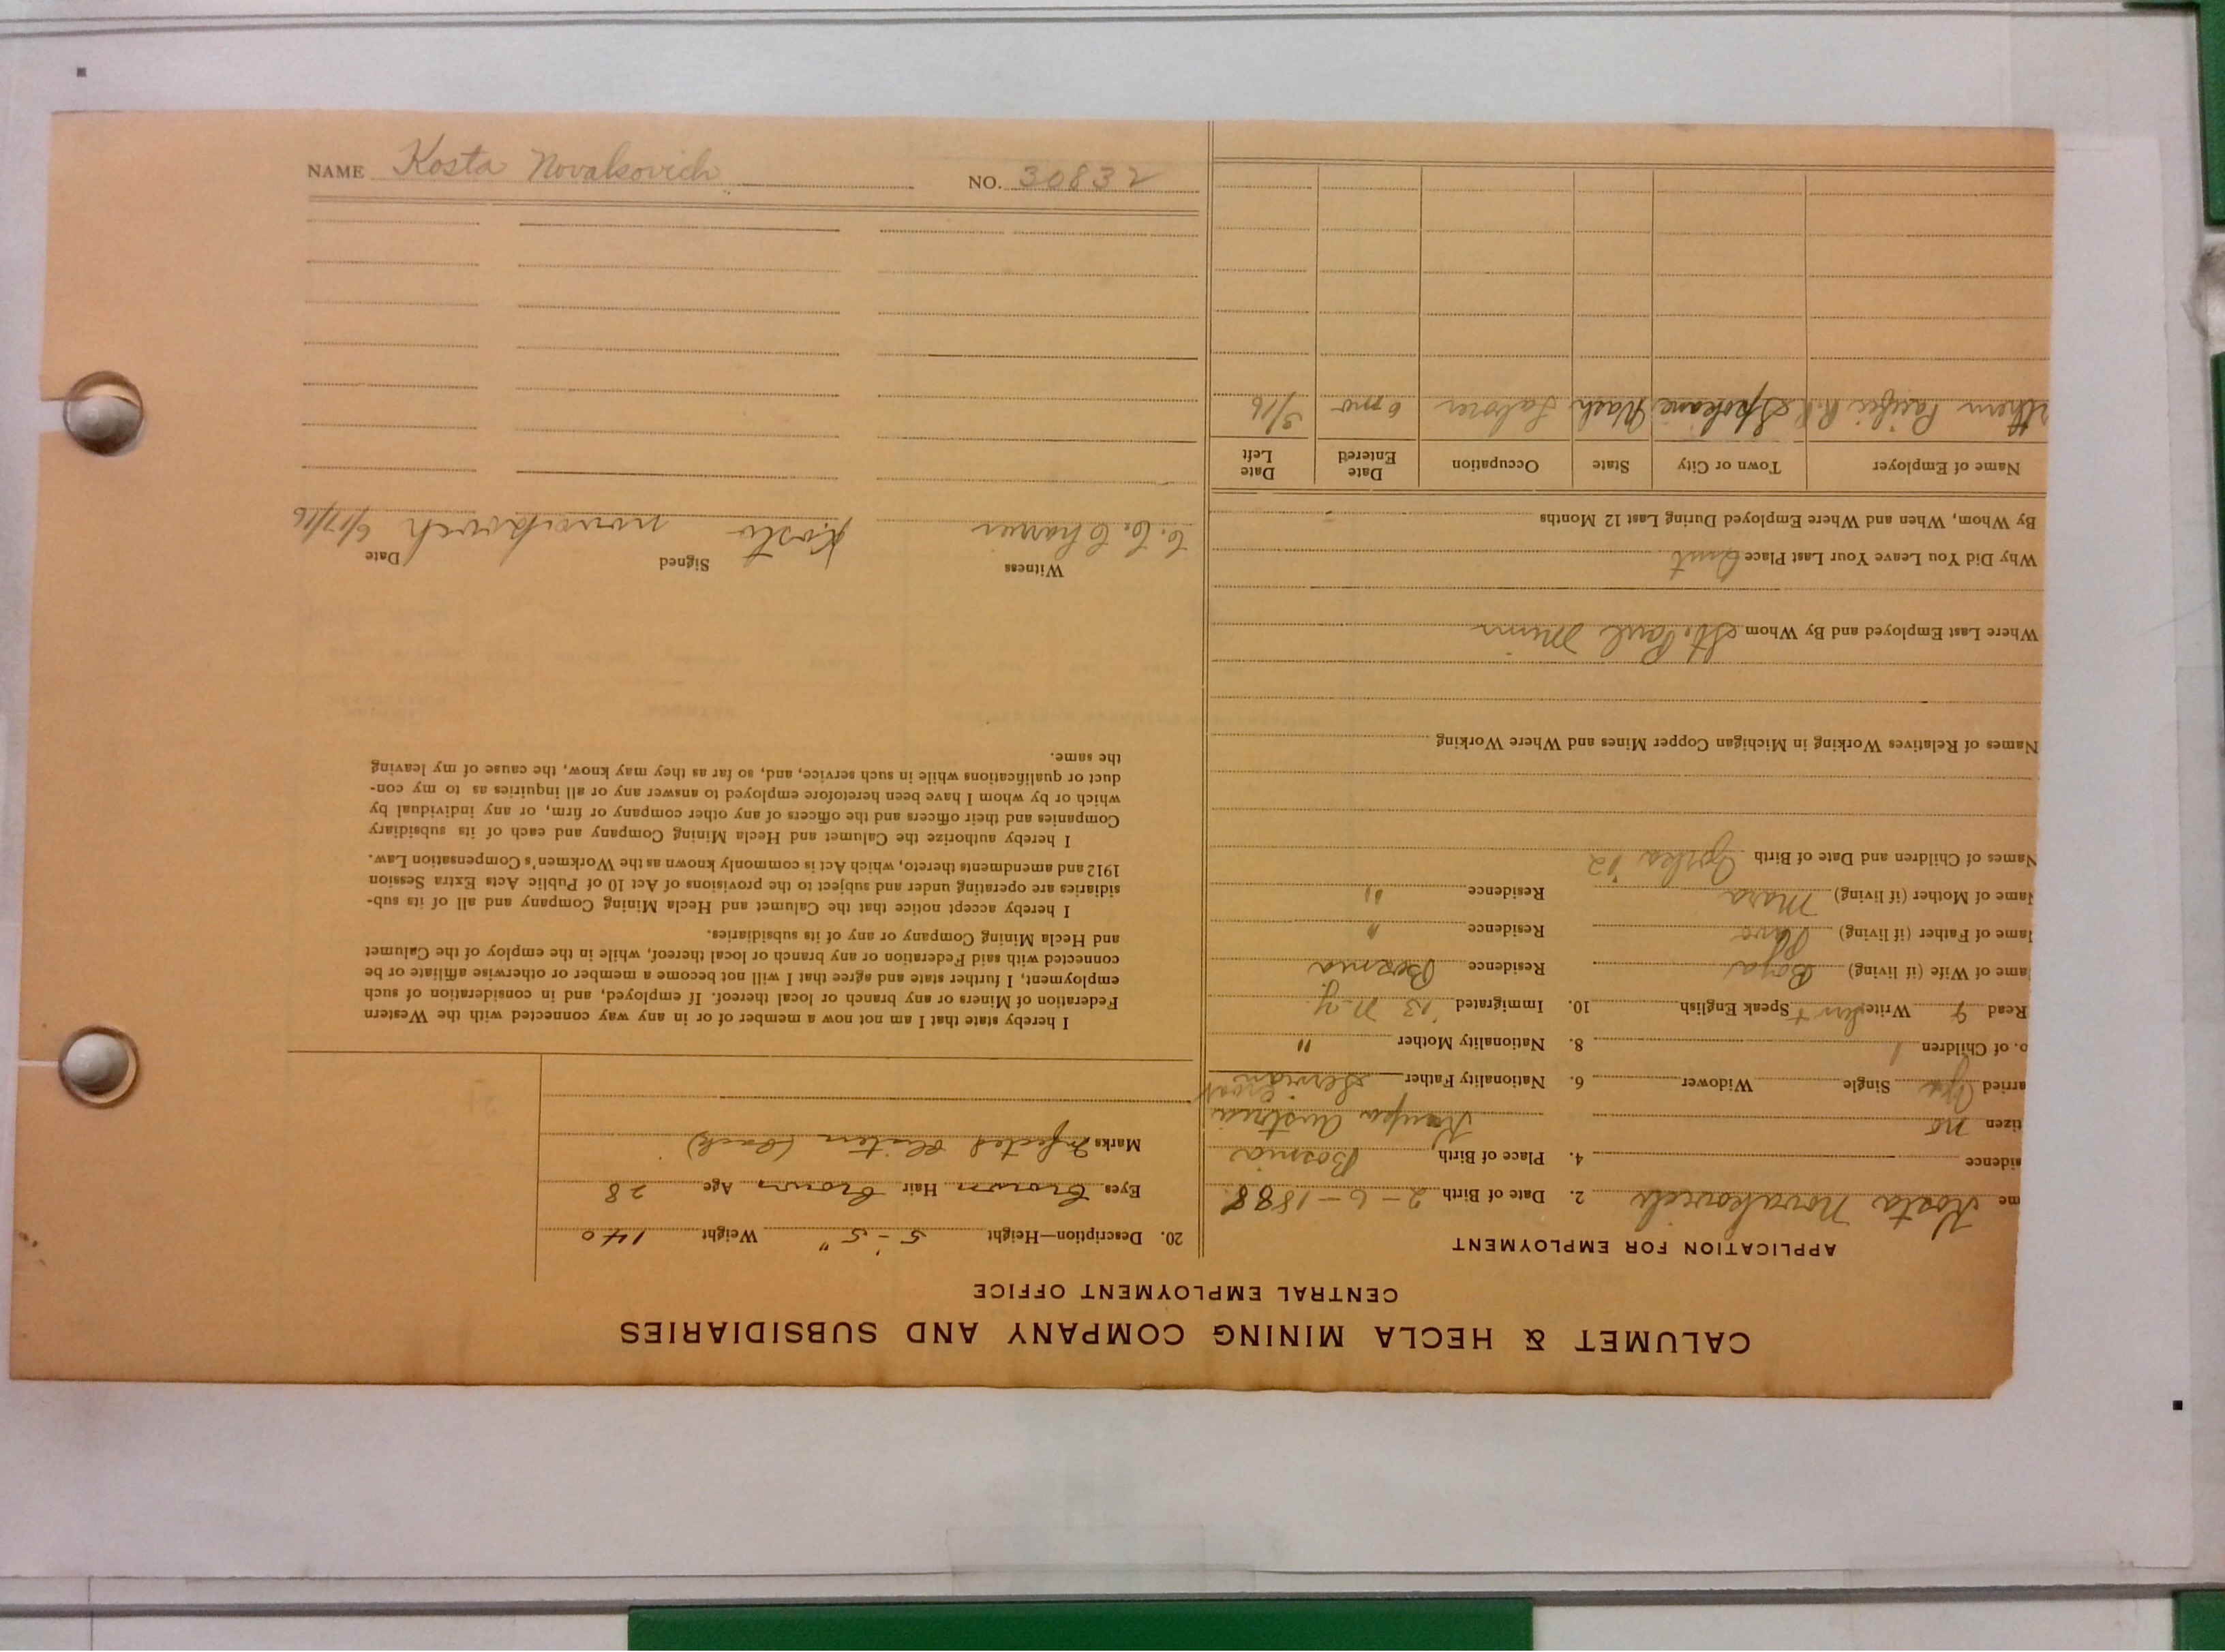 NAME Kosta Novakovich NO. 30832
CALUMET & HECLA MINING COMPANY AND SUBSIDIARIES
CENTRAL EMPLOYMENT OFFICE
APPLICATION FOR EMPLOYMENT
me Kosta Novakovich 2. Date of Birth 2-6-1888
sidence 4. Place of Birth Bosnia
tizen no Austria
arried Single Widower 6. Nationality Father Servian
Croat
o. of Children 1 8. Nationality Mother "
Read Write Speak English 10. Immigrated '13 N.Y.
ame of Wife (if living) Boja Residence Bosnia
ame of Father (if living) Residence "
ame of Mother (if living) Mara Residence "
Names of Children and Date of Birth '12
Names of Relatives Working in Michigan Copper Mines and Where Working
Where Last Employed and By Whom St. Paul Minn
Why Did You Leave Your Last Place Quit
By Whom, When and Where Employed During Last 12 Months
Name of Employer Town or City State Occupation Date Entered Date Left
thern Pacific R.R. Spokane Wash Laborer 6 mo 3/16
20. Description—Height 5'-5" Weight 140
Eyes Brown Hair Brown Age 28
Marks Infected (back)
I hereby state that I am not now a member of or in any way connected with the Western
Federation of Miners or any branch or local thereof. If employed, and in consideration of such
employment, I further state and agree that I will not become a member or otherwise affiliate or be
connected with said Federation or any branch or local thereof, while in the employ of the Calumet
and Hecla Mining Company or any of its subsidiaries.
I hereby accept notice that the Calumet and Hecla Mining Company and all of its sub-
sidiaries are operating under and subject to the provisions of Act 10 of Public Acts Extra Session
1912 and amendments thereto, which Act is commonly known as the Workmen's Compensation Law.
I hereby authorize the Calumet and Hecla Mining Company and each of its subsidiary
Companies and their officers and the officers of any other company or firm, or any individual by
which or by whom I have been heretofore employed to answer any or all inquiries as to my con-
duct or qualifications while in such service, and, so far as they may know, the cause of my leaving
the same.
Witness Signed Date
Kosta 6/17/16